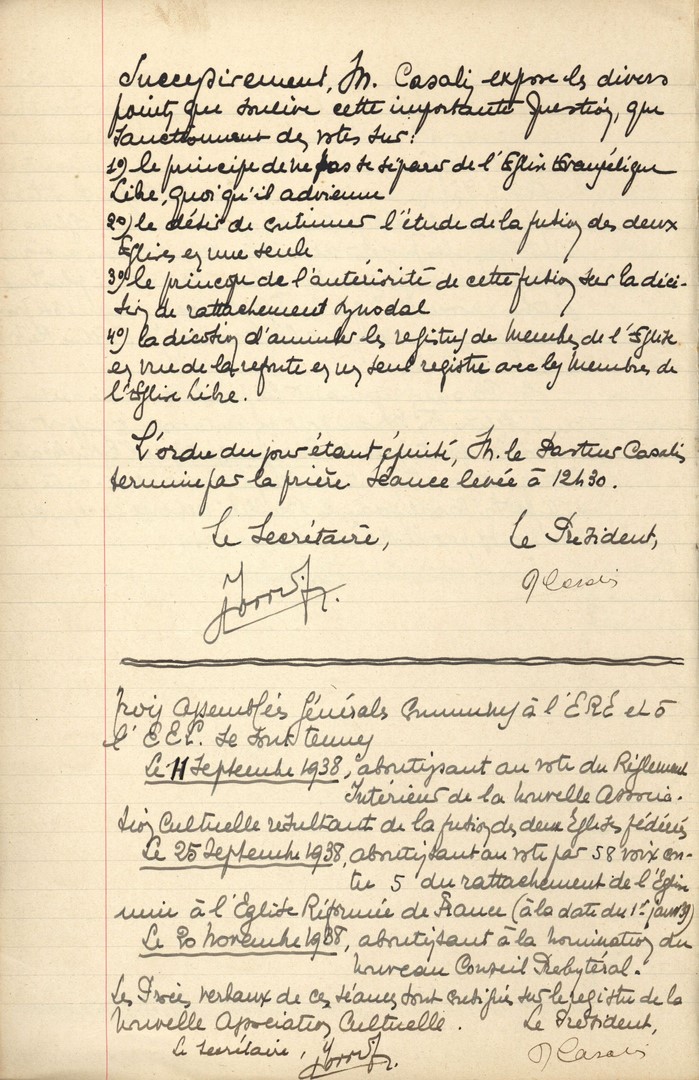 Successivement, M. Casalis expose les divers
points que soulève cette importante Question, que
sanctionnent des votes sur:
1º) le principe de ne pas se séparer de l'Eglise Evangélique
Libre, quoi qu'il advienne
2º) le désir de continuer l'étude de la fusion des deux
Eglises en une seule
3º) le principe de l'antériorité de cette fusion sur la déci-
sion de rattachement synodal
4º) la décision d'annuler les registres de Membres de l'Eglise
en vue de la refonte en un seul registre avec les Membres de
l'Eglise Libre.
L'ordre du jour étant épuisé, M. le Pasteur Casalis
termine par la prière Séance levée à 12h30.
Le Secrétaire, Le Président,
Casalis
Trois Assemblées Générales Communes à l'ERE et à
l'EEL. se sont tenues
Le 11 Septembre 1938, aboutissant au vote du Règlement
Intérieur de la Nouvelle Associa-
tion Cultuelle résultant de la fusion des deux Eglises fédérées
Le 25 Septembre 1938, aboutissant au vote par 58 voix con-
tre 5 du rattachement de l'Eglise
unie à l'Eglise Réformée de France (à la date du 1er janv 39)
Le 20 Novembre 1938, aboutissant à la nomination du
Nouveau Conseil Presbytéral.
Les Procès verbaux de ces séances sont consignés sur le registre de la
Nouvelle Association Cultuelle. Le Président,
Le Secrétaire, Casalis